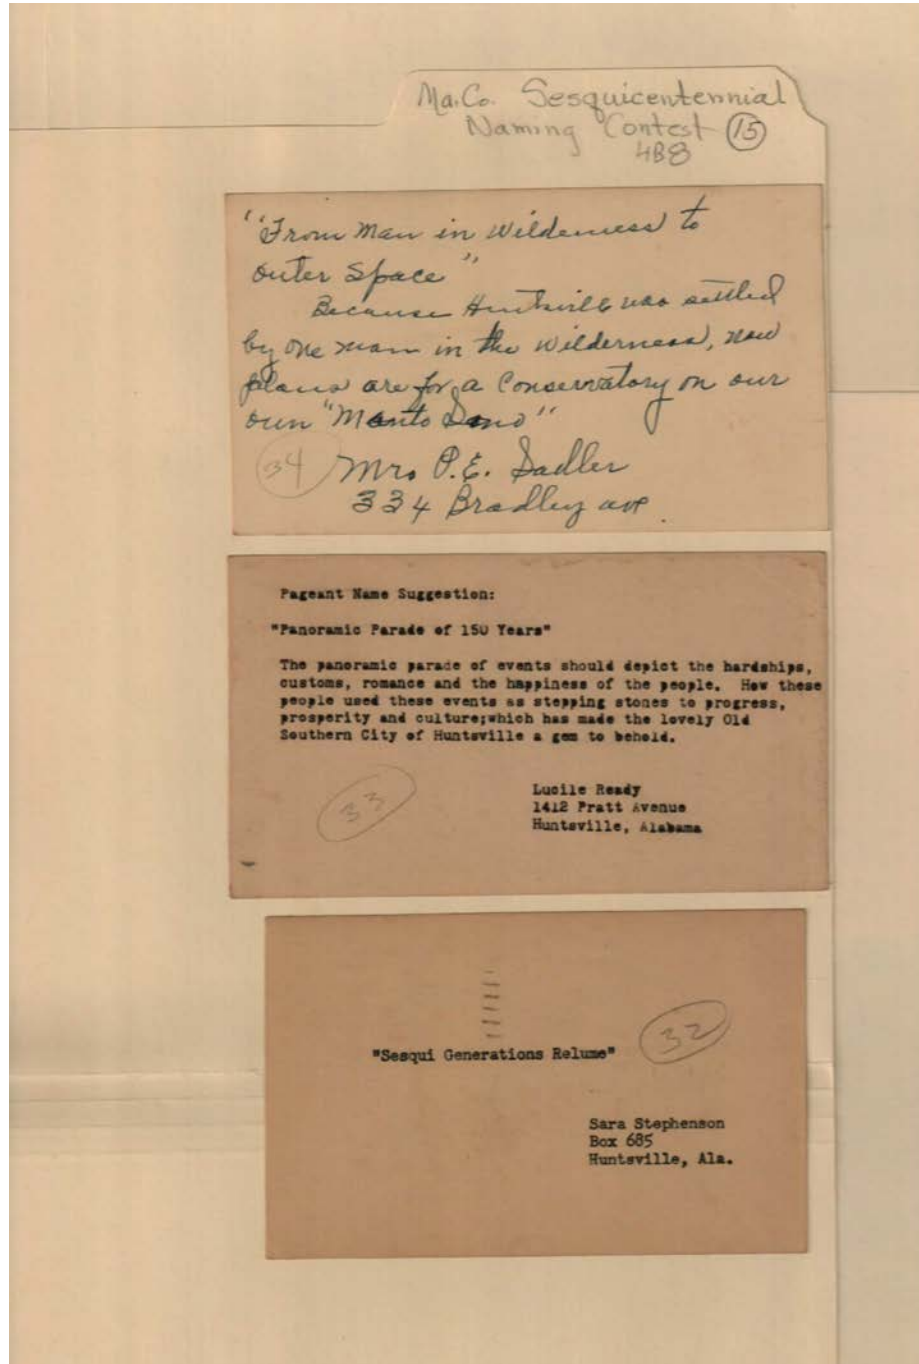 Ma. Co. Sesquicentennial
Naming Contest 15
4B8
"From Man in Wilderness to
outer Space"
Because Huntsville was settled
by one man in the wilderness, now
plans are for a Conservatory on our
own "Monto Sano"
34 Mrs P.E. Sadler
334 Bradley ave
Pageant Name Suggestion:
"Panoramic Parade of 150 Years"
The panoramic parade of events should depict the hardships,
customs, romance and the happiness of the people. How these
people used these events as stepping stones to progress,
prosperity and culture;which has made the lovely Old
Southern City of Huntsville a gem to behold.
33
Lucile Ready
1412 Pratt Avenue
Huntsville, Alabama
32
"Sesqui Generations Relume"
Sara Stephenson
Box 685
Huntsville, Ala.